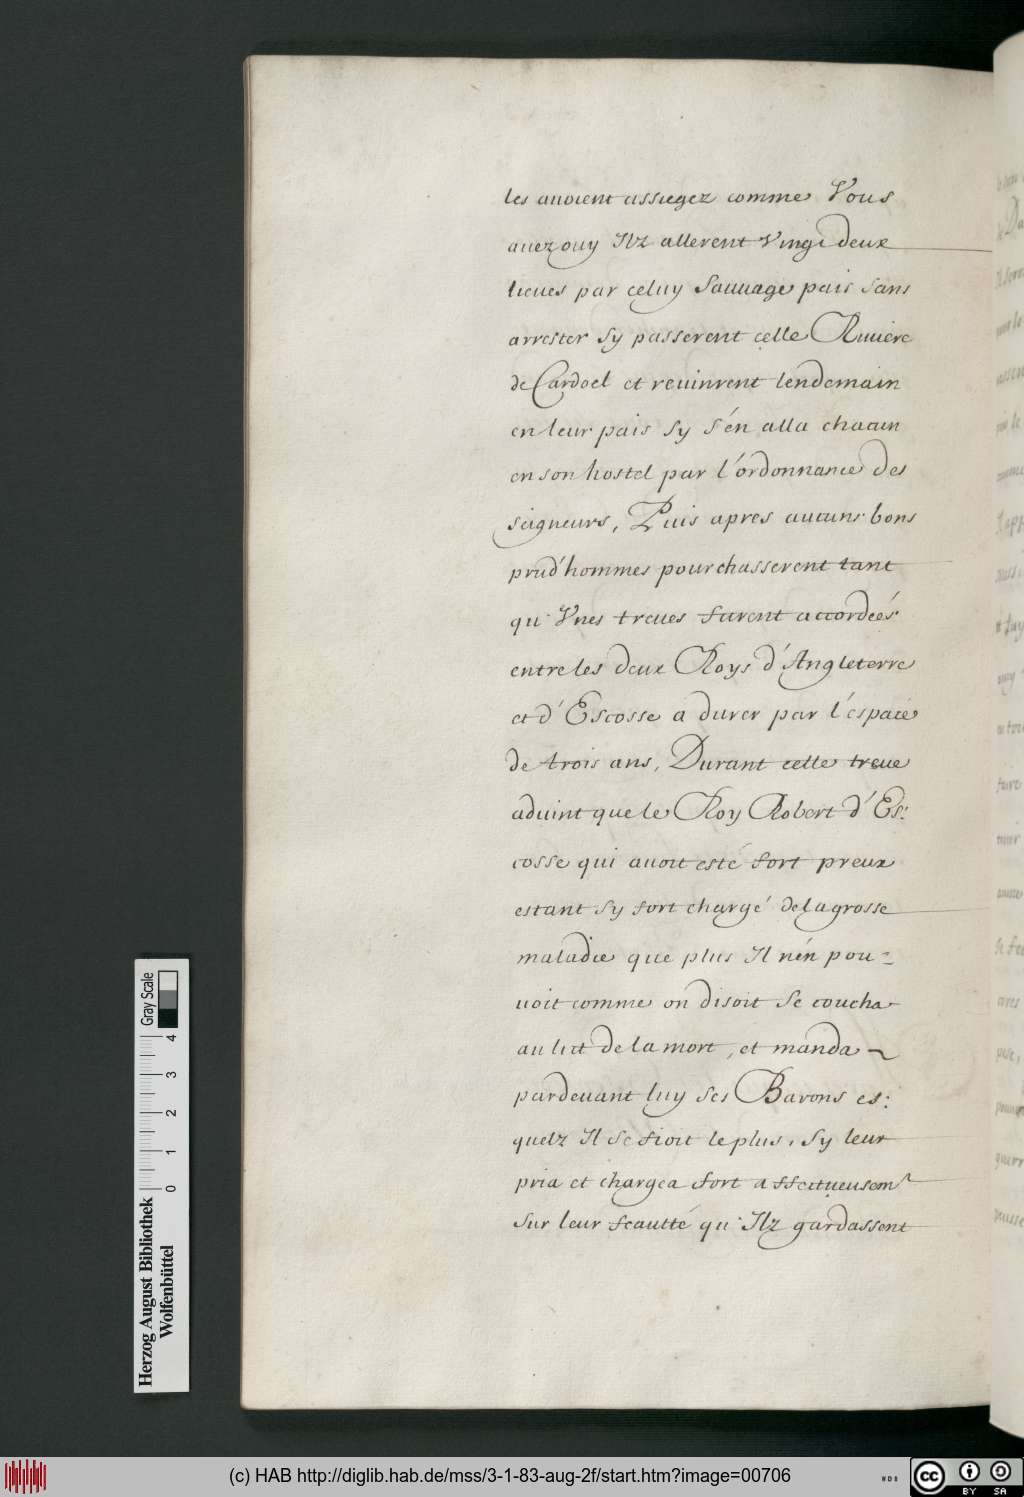 les auoient assiegez comme Vous
auez ouy Ilz allerent vingt deux
lieues par celuy Sauuage pais sans
arrester sy passerent celle Riuiere
de Cardoel et reuinrent lendemain
en leur pais sy s'én alla chacun
en son hostel par l'ordonnance des
seigneurs, Puis apres aucuns bons
prud'hommes pourchasserent tant
qu'Vnes treues furent accordeés
entre les deux Roys d'Angleterre
et d'Escosse a durer par l'éspace
de trois ans, Durant celle treue
aduint que le Roy Robert d'Es:
cosse qui auoit esté fort preux
estant sy fort chargé de la grosse
maladie que plus Il n'én pou-
uoit comme on disoit Se coucha
au lict de la mort, et manda
pardeuant luy ses Barons es:
quelz Il Se fioit le plus, Sy leur
pria et chargea fort affectueusemt
Sur leur feautté qu'Ilz gardassent
Herzog August Bibliothek
Wolfenbüttel
0 1 2 3 4
Gray Scale
(c) HAB http://diglib.hab.de/mss/3-1-83-aug-2f/start.htm?image=00706
WDB
cc BY SA